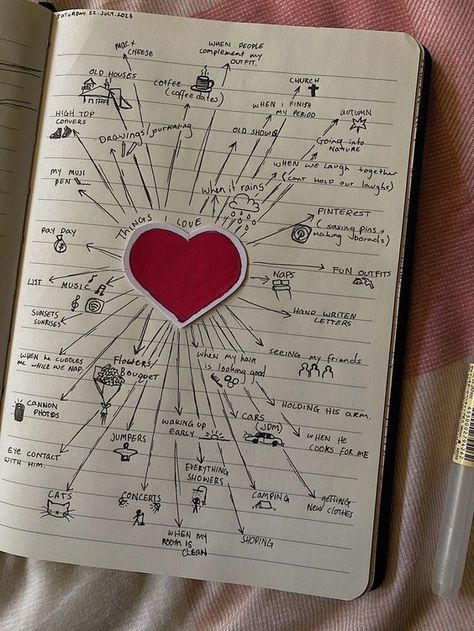 SATURDAY. 22. JULY. 2023
MAC +
CHEESE
WHEN PEOPLE
COMPLEMENT MY
OUTFIT.
OLD HOUSES
COFFEE
(COFFEE DATES)
CHURCH
HIGH TOP
CONVERS
DRAWINGS/JOURNALING
WHEN I FINISH
MY PERIOD
AUTUMN
OLD SHOWS
GOING INTO
NATURE
MY MUJI
PEN
WHEN WE LAUGH TOGETHER
(CANT HOLD OUR LAUGHS)
WHEN IT RAINS
THINGS I LOVE
PINTEREST
(SAVING PINS +
MAKING
PAY DAY
NAPS
FUN OUTFITS
LIST
MUSIC
HAND WRITEN
LETTERS
SUNSETS
SUNRISES
WHEN HE CUDDLES
ME WHILE WE NAP.
FLOWERS/
BOUQUET
WHEN MY HAIR
IS LOOKING GOOD
SEEING MY FRIENDS
CANNON
PHOTOS
HOLDING HIS ARM.
WAKING UP
EARLY
CARS
(JDM)
WHEN HE
COOKS FOR ME
EYE CONTACT
WITH HIM.
JUMPERS
EVERYTHING
SHOWERS
CATS
CONCERTS
CAMPING
GETTING
NEW CLOTHES
WHEN MY
ROOM IS
CLEAN
SHOPING